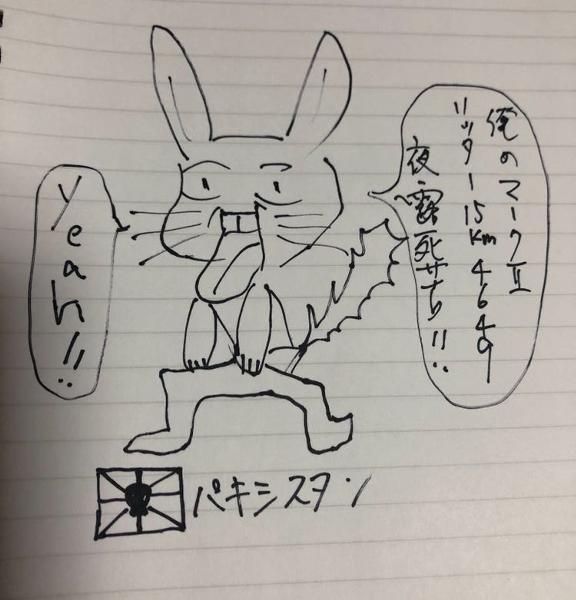 俺のマークⅡ
リッター15km 4649
夜露死苦!!
Yeah!!
パキシスタン